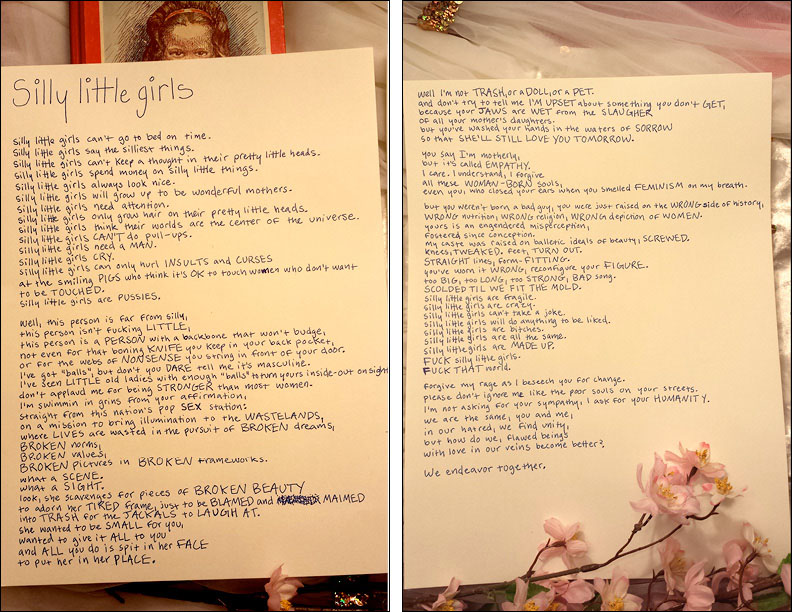 Silly little girls
Silly little girls can't go to bed on time.
Silly little girls say the silliest things.
Silly little girls can't keep a thought in their pretty little heads.
Silly little girls spend money on silly little things.
Silly little girls always look nice.
Silly little girls will grow up to be wonderful mothers.
Silly little girls need attention.
Silly little girls only grow hair on their pretty little heads.
Silly little girls think their worlds are the center of the universe.
Silly little girls CAN'T do pull-ups.
Silly little girls need a MAN.
Silly little girls CRY.
Silly little girls can only hurl INSULTS and CURSES
at the smiling PIGS who think it's OK to touch women who don't want
to be TOUCHED.
Silly little girls are PUSSIES.
Well, this person is far from silly,
this person isn't fucking LITTLE,
this person is a PERSON with a backbone that won't budge,
not even for that boning KNIFE you keep in your back pocket,
or for the webs of NONSENSE you string in front of your door.
I've got "balls", but don't you DARE tell me it's masculine.
I've seen LITTLE old ladies with enough "balls" to turn yours inside-out on sight
don't applaud me for being STRONGER than most women.
I'm swimmin in grins from your affirmation,
straight from this nation's pop SEX station:
on a mission to bring illumination to the WASTELANDS,
where LIVES are wasted in the pursuit of BROKEN dreams,
BROKEN norms,
BROKEN values,
BROKEN pictures in BROKEN frameworks.
what a SCENE.
what a SIGHT.
look, she scavenges for pieces of BROKEN BEAUTY
to adorn her TIRED frame, just to be BLAMED and MAIMED
into TRASH for the JACKALS to LAUGH AT.
she wanted to be SMALL for you,
wanted to give it ALL to you
and ALL you do is spit in her FACE
to put her in her PLACE.
well I'm not TRASH, or a DOLL, or a PET.
and don't try to tell me I'M UPSET about something you don't GET,
because your JAWS are WET from the SLAUGHER
of all your mother's daughters.
but you've washed your hands in the waters of SORROW
so that SHE'LL STILL LOVE YOU TOMORROW.
you say I'm motherly,
but it's called EMPATHY.
I care. I understand, I forgive
all these WOMAN-BORN souls,
even you, who closed your ears when you smelled FEMINISM on my breath.
but you weren't born a bad guy, you were just raised on the WRONG side of history,
WRONG nutrition, WRONG religion, WRONG depiction of WOMEN.
yours is an engendered misperception,
fostered since conception.
My caste was raised on balletic ideals of beauty, SCREWED.
knees, TWEAKED. feet, TURN OUT.
STRAIGHT lines, form-FITTING.
you've worn it WRONG, reconfigure your FIGURE.
too BIG, too LONG, too STRONG, BAD song.
SCOLDED TIL WE FIT THE MOLD.
silly little girls are fragile.
silly little girls are crazy.
silly little girls can't take a joke.
silly little girls will do anything to be liked.
silly little girls are bitches.
silly little girls are all the same.
silly little girls are MADE UP.
FUCK silly little girls.
FUCK THAT world.
forgive my rage as I beseech you for change.
please don't ignore me like the poor souls on your streets.
I'm not asking for your sympathy, I ask for your HUMANITY.
we are the same, you and me,
in our hatred, we find unity,
but how do we, flawed beings
with love in our veins become better?
We endeavor together.